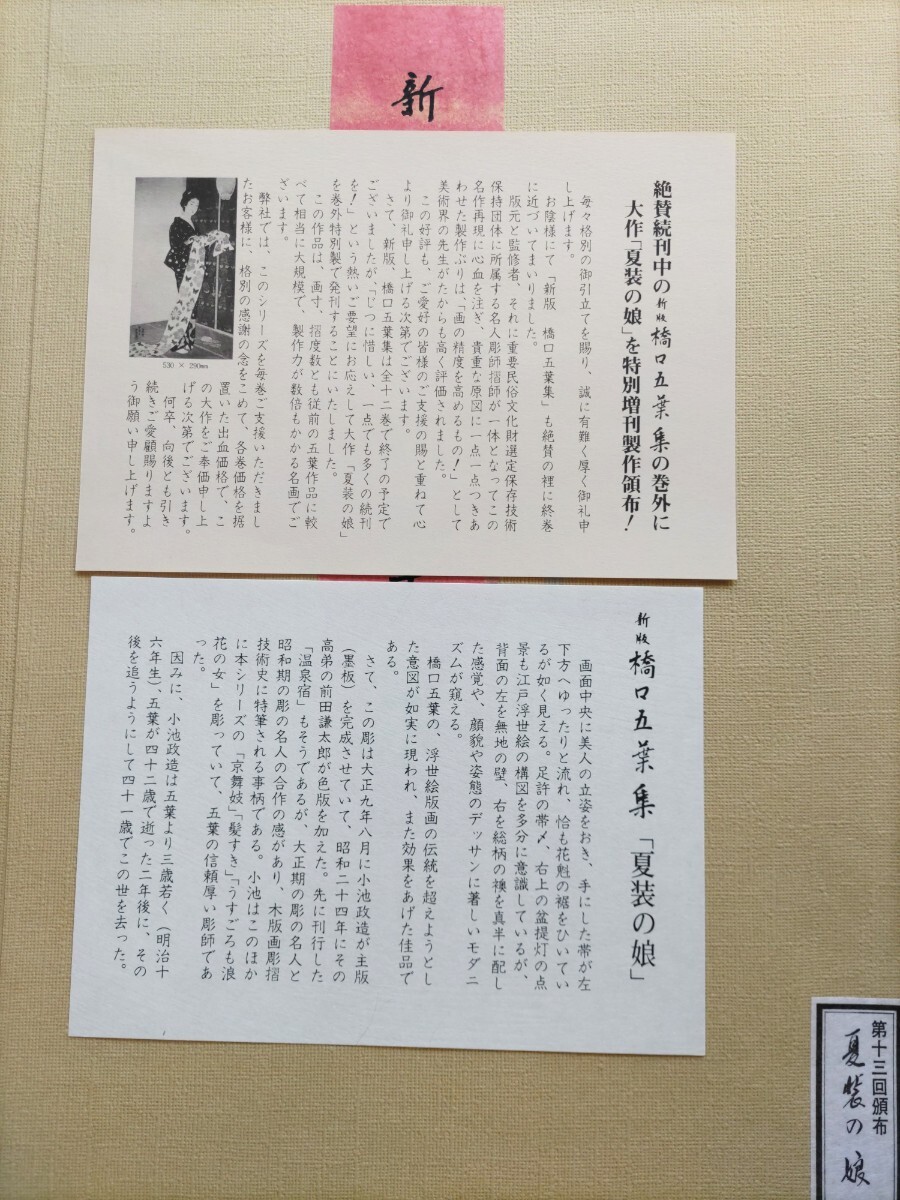 新
絶賛続刊中の新版橋口五葉集の巻外に
大作「夏装の娘」を特別増刊製作頒布！
毎々格別の御引立てを賜り、誠に有難く厚く御礼申
し上げます。
お陰様にて「新版　橋口五葉集」も絶賛の裡に終巻
に近づいてまいりました。
版元と監修者、それに重要民俗文化財選定保存技術
保持団体に所属する名人彫師摺師が一体となってこの
名作再現に心血を注ぎ、貴重な原図に一点一点つきあ
わせた製作ぶりは、「画の精度を高めるもの！」として
美術界の先生がたからも高く評価されました。
この好評も、ご愛好の皆様のご支援の賜と重ねて心
より御礼申し上げる次第でございます。
さて、新版、橋口五葉集は全十二巻で終了の予定で
ございましたが「じつに惜しい、一点でも多くの続刊
を！」という熱いご要望にお応えして大作「夏装の娘」
を巻外特別製で発刊することにいたしました。
この作品は、画寸、摺度数とも従前の五葉作品に較
べて相当に大規模で、製作力が数倍もかかる名画でご
ざいます。
弊社では、このシリーズを毎巻ご支援いただきまし
たお客様に、格別の感謝の念をこめて、各巻価格を据
置いた出血価格で、こ
の大作をご奉価申し上
げる次第でございます。
何卒、向後とも引き
続きご愛顧賜りますよ
う御願い申し上げます。
530 × 290mm
新版　橋口五葉集「夏装の娘」
画面中央に美人の立姿をおき、手にした帯が左
下方へゆったりと流れ、恰も花魁の裾をひいてい
るが如く見える。足許の帯〆、右上の盆提灯の点
景も江戸浮世絵の構図を多分に意識しているが、
背面の左を無地の壁、右を総柄の襖を真半に配し
た感覚や、顔貌や姿態のデッサンに著しいモダニ
ズムが窺える。
橋口五葉の、浮世絵版画の伝統を超えようとし
た意図が如実に現われ、また効果をあげた佳品で
ある。
さて、この彫は大正九年八月に小池政造が主版
（墨板）を完成させていて、昭和二十四年にその
高弟の前田謙太郎が色版を加えた。先に刊行した
「温泉宿」もそうであるが、大正期の彫の名人と
昭和期の彫の名人の合作の感があり、木版画彫摺
技術史に特筆される事柄である。小池はこのほか
に本シリーズの「京舞妓」「髪すき」「うすごろも浪
花の女」を彫っていて、五葉の信頼厚い彫師であ
った。
因みに、小池政造は五葉より三歳若く（明治十
六年生）、五葉が四十二歳で逝った二年後に、その
後を追うようにして四十一歳でこの世を去った。
第十三回頒布
夏装の娘